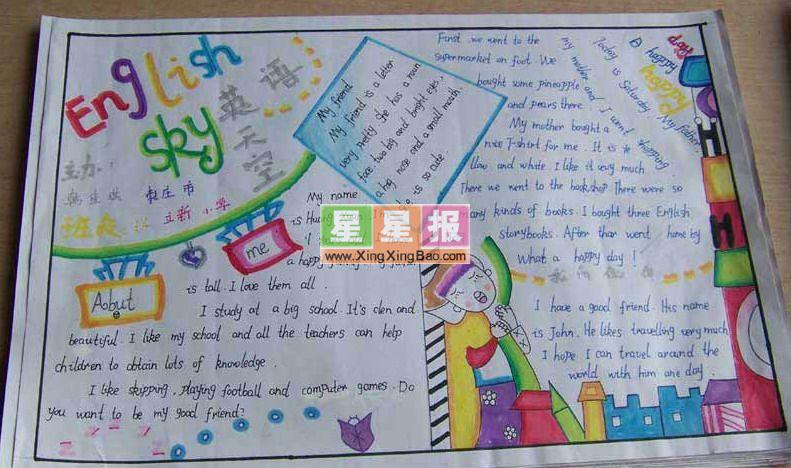 English
sky
英语
天空
主办:
枣庄市
立新小学
About
me
My friend
My friend is a leter
very pretty she has a roun
face two big and bright eyes,
a big nose and a small mouth.
is so cute
My name
is Huang
a happy
is tall. I love them all.
I study at a big school. It's clen and
beautiful. I like my school and all the teachers can help
children to obtain lots of knowledge.
I like skipping, playing football and computer games. Do
you want to be my good friend?
A happy
day
happy
Today is Saturday My father,
my mother and I went shopping
First we went to the
supermarket on foot. We
bought some pineapple
and pears there.
My mother bought a
nice T-shirt for me. It is
llow and white I like it very much.
There we went to the bookshop There were so
many kinds of books. I bought three English
storybooks. After than went home by
What a happy day!
I have a good friend. His name
is John. He likes travelling very much
I hope I can travel around the
world with him one day.
星星报
www.XingXingBao.com